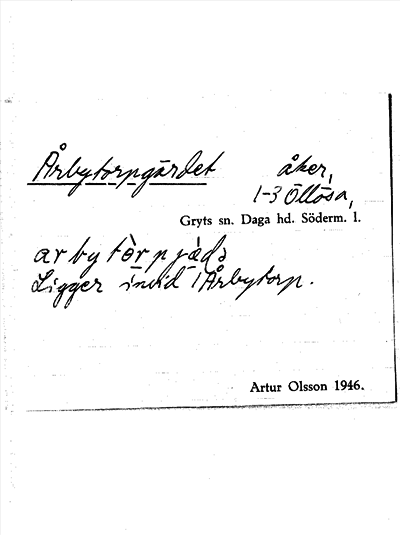 Årbytorpgärdet åker,
1-3 Öllösa,
Gryts sn. Daga hd. Söderm. l.
Ligger invid Årbytorp.
Artur Olsson 1946.